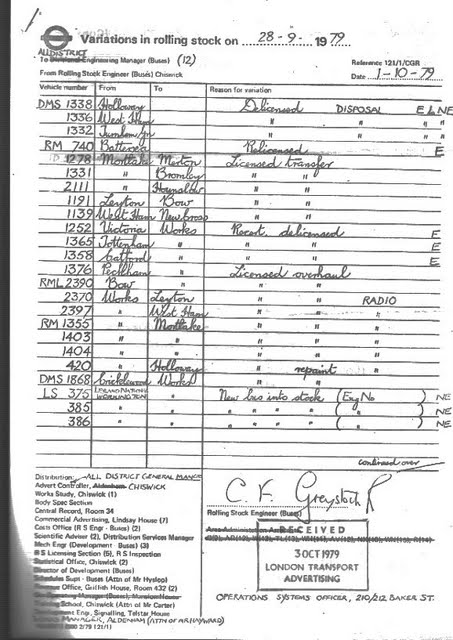 Variations in rolling stock on 28-9-1979
ALL DISTRICT
To Divisional Engineering Manager (Buses) (12)
Reference 121/1/CGR
From Rolling Stock Engineer (Buses) Chiswick
Date 1-10-79
Vehicle number From To Reason for variation
DMS 1338 Holloway Delicensed DISPOSAL E L NE
1336 West Ham " " " "
1332 Turnham Gn " " " "
RM 740 Battersea Relicensed E
1278 Mortlake Merton Licensed transfer
1331 " Bromley " "
2111 " Hounslow " "
1191 Leyton Bow " "
1139 West Ham New Cross " "
1252 Victoria Works Recert. delicensed E
1365 Tottenham " " " E
1358 Catford " " " E
1376 Peckham " Licensed overhaul
RML 2390 Bow " " "
2370 Works Leyton " " RADIO
2397 " West Ham " "
RM 1355 " Mortlake " "
1403 " " " "
1404 " " " "
420 " Holloway " repaint "
DMS 1868 Cricklewood Works " "
LS 375 LEYLAND NATIONAL WORKINGTON " New bus into stock (Eng No ) NE
385 " " " " " " ( " ) NE
386 " " " " " " ( " ) NE
continued over
Distribution: ALL DISTRICT GENERAL MANGR
Advert Controller, Aldenham CHISWICK
Works Study, Chiswick (1)
Body Spec Section
Central Record, Room 34
Commercial Advertising, Lindsay House (7)
Costs Office (R S Eng - Buses) (2)
Scientific Adviser (2), Distribution Services Manager
Mech Engr (Development - Buses) (3)
R S Licensing Section (5), R S Inspection
Statistical Office, Chiswick (2)
Director of Development (Buses)
Schedules Supt - Buses (Attn of Mr Hyslop)
Revenue Office, Griffith House, Room 432 (2)
Training School, Chiswick (Attn of Mr Carter)
Development Eng, Signalling, Telstar House
MANAGER, ALDENHAM (ATTN OF MR HAYWARD)
C. F. Greystoch
Rolling Stock Engineer (Buses)
RECEIVED
3 OCT 1979
LONDON TRANSPORT
ADVERTISING
OPERATIONS SYSTEMS OFFICER, 210/212 BAKER ST.